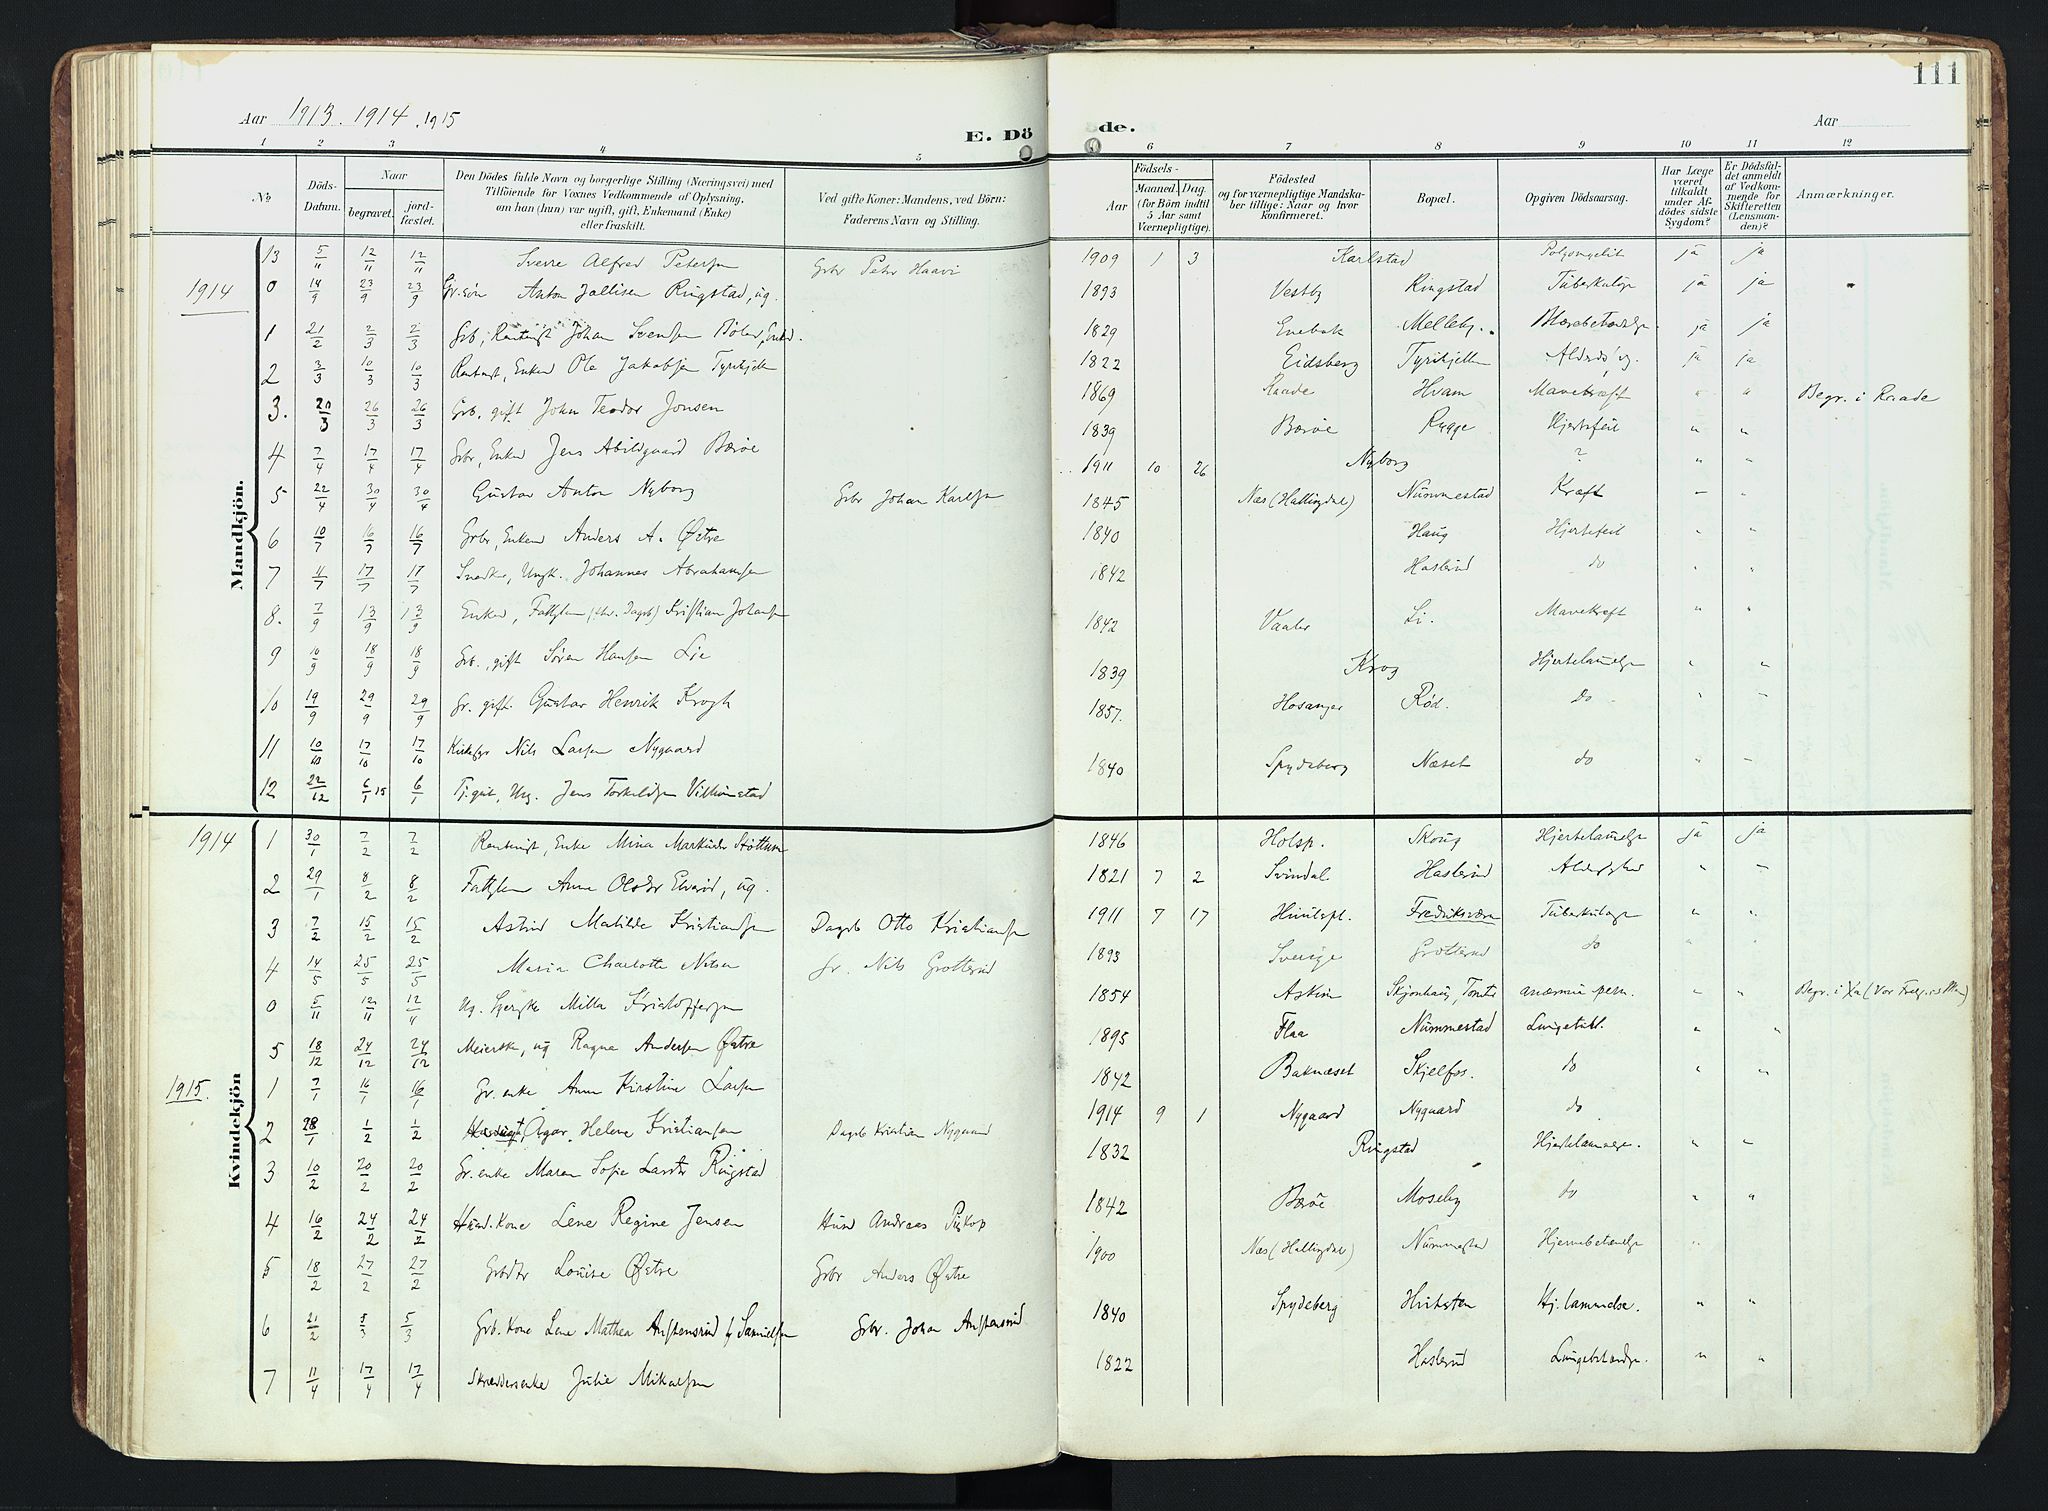 111
Aar 1913. 1914. 1915
E. Döde.
Aar
1 2 3 4 5 6 7 8 9 10 11 12
No.
Döds-Datum.
Naar
begravet.
jord-fæstet.
Den Dödes fulde Navn og borgerlige Stilling (Næringsvei) med
Tilföiende for Voxnes Vedkommende af Oplysning,
om han (hun) var ugift, gift, Enkemand (Enke)
eller fraskilt.
Ved gifte Koner: Mandens, ved Börn:
Faderens Navn og Stilling.
Födsels-
Aar
Maaned. Dag.
(for Börn indtil
5 Aar samt
Værnepligtige).
Födested
og for værnepligtige Mandska-
ber tillige: Naar og hvor
konfirmeret.
Bopæl.
Opgiven Dödsaarsag.
Har Læge
været
tilkaldt
under Af-
dödes sidste
Sygdom?
Er Dödsfal-
det anmeldt
af Vedkom-
mende for
Skifteretten
(Lensman-
den)?
Anmærkninger.
Mandkjön.
13 5/11 12/11 12/11 Sverre Alfred Petersen Grbr Peter Haavi 1909 1 3 Karlstad ja ja
1914 0 14/9 23/9 23/9 Gr.søn Anton Ringstad, ug. 1893 Vestby Ringstad Tuberkulose ja ja
1 21/2 2/3 2/3 Grb, Johan Svendsen 1829 Enebak Melleby. ja ja
2 3/3 10/3 10/3 Enkem Ole Jakobsen Tyrihjell 1822 Eidsberg Tyrihjell ja ja
3. 20/3 26/3 26/3 Grb. gift John Teodor Jonsen 1869 Raade Hvam Mavekræft " " Begr. i Raade
4 7/4 17/4 17/4 Grbr, Enkem Jens Abildgaard Bærøe 1839 Bærøe Rygge Hjertefeil " "
5 22/4 30/4 30/4 Gustav Anton Nyborg Grbr Johan Karlsen 1911 10 26 Nyborg ? " "
6 10/7 16/7 16/7 Grbr, Enkem Anders A. Østre 1845 Næs (Hallingdal) Nummestad Kræft – "
7 11/7 17/7 17/7 Snedker, Ungk. Johannes Abrahamsen 1840 Haug Hjertefeil " "
8. 7/9 13/9 13/9 Enkem, Fattiglem (fhv. Dagsb) Kristian Johansen 1842 Haslerud do " "
9 10/9 18/9 18/9 Grb., gift Søren Hansen Lie 1842 Vaaler Li. Mavekræft " "
10 19/9 29/9 29/9 Gr. gift. Gustav Henrik Krogh 1839 Krog Hjertelammelse " "
11 10/10 17/10 17/10 Nils Larsen Nygaard 1857. Hosanger Rød. do " "
12 22/12 6/1 15 6/1 Tj.gut, Ung. Jens Torkildsen 1840 Spydeberg Næset do " "
Kvindekjön
1914 1 30/1 7/2 7/2 Enke Mina 1846 Holsp. Skoug Hjertelammelse ja ja
2 29/1 8/2 8/2 Fattiglem Anne Olsdtr ug. 1821 7 2 Svindal Haslerud " "
3 7/2 15/2 15/2 Astrid Matilde Kristiansen Dagsb Otto Kristiansen 1911 7 17 Fredriksværn Tuberkulose " "
4 14/5 25/5 25/5 Maria Charlotte Nilsen Gr. Nils Grotterud 1893 Sverige Grotterud do " "
0 5/11 12/11 12/4 Ug. Milla Kristoffersen 1854 Askim Skjønhaug, anæmia pern. " "
5 18/12 24/12 24/12 Meierske, ug Ragna Andersen Østre 1895 Flaa Nummestad " "
1915. 1 7/1 16/1 16/1 Gr. enke Anne Kirstine Larsen 1842 Baknæset Skjelfos. do " "
2 28/1 1/2 1/2 Agar Helene Kristiansen Dagsb Kristian Nygaard 1914 9 1 Nygaard Nygaard do " "
3 10/2 20/2 20/2 Gr. enke Maren Sofie Larsdtr Ringstad 1832 Ringstad Hjertelammelse. " "
4 16/2 24/2 24/2 Husm. Kone Lene Regine Jensen Husm Andreas 1842 Bærøe Moseby do " "
5 18/2 27/2 27/2 Grbdtr Louise Østre Grbr Anders Østre 1900 Næs (Hallingdal) Nummestad Hjernebetændelse "
6 21/2 5/3 5/3 Grb. Kone Lene Mathea Anstensrud f. Samuelsen Grbr. Johan Anstensrud 1840 Spydeberg Hvitsten Hj. lammelse. " "
7 11/4 17/4 17/4 Skrædderenke Julie Mikalsen 1822 Haslerud Lungebetændelse. " "